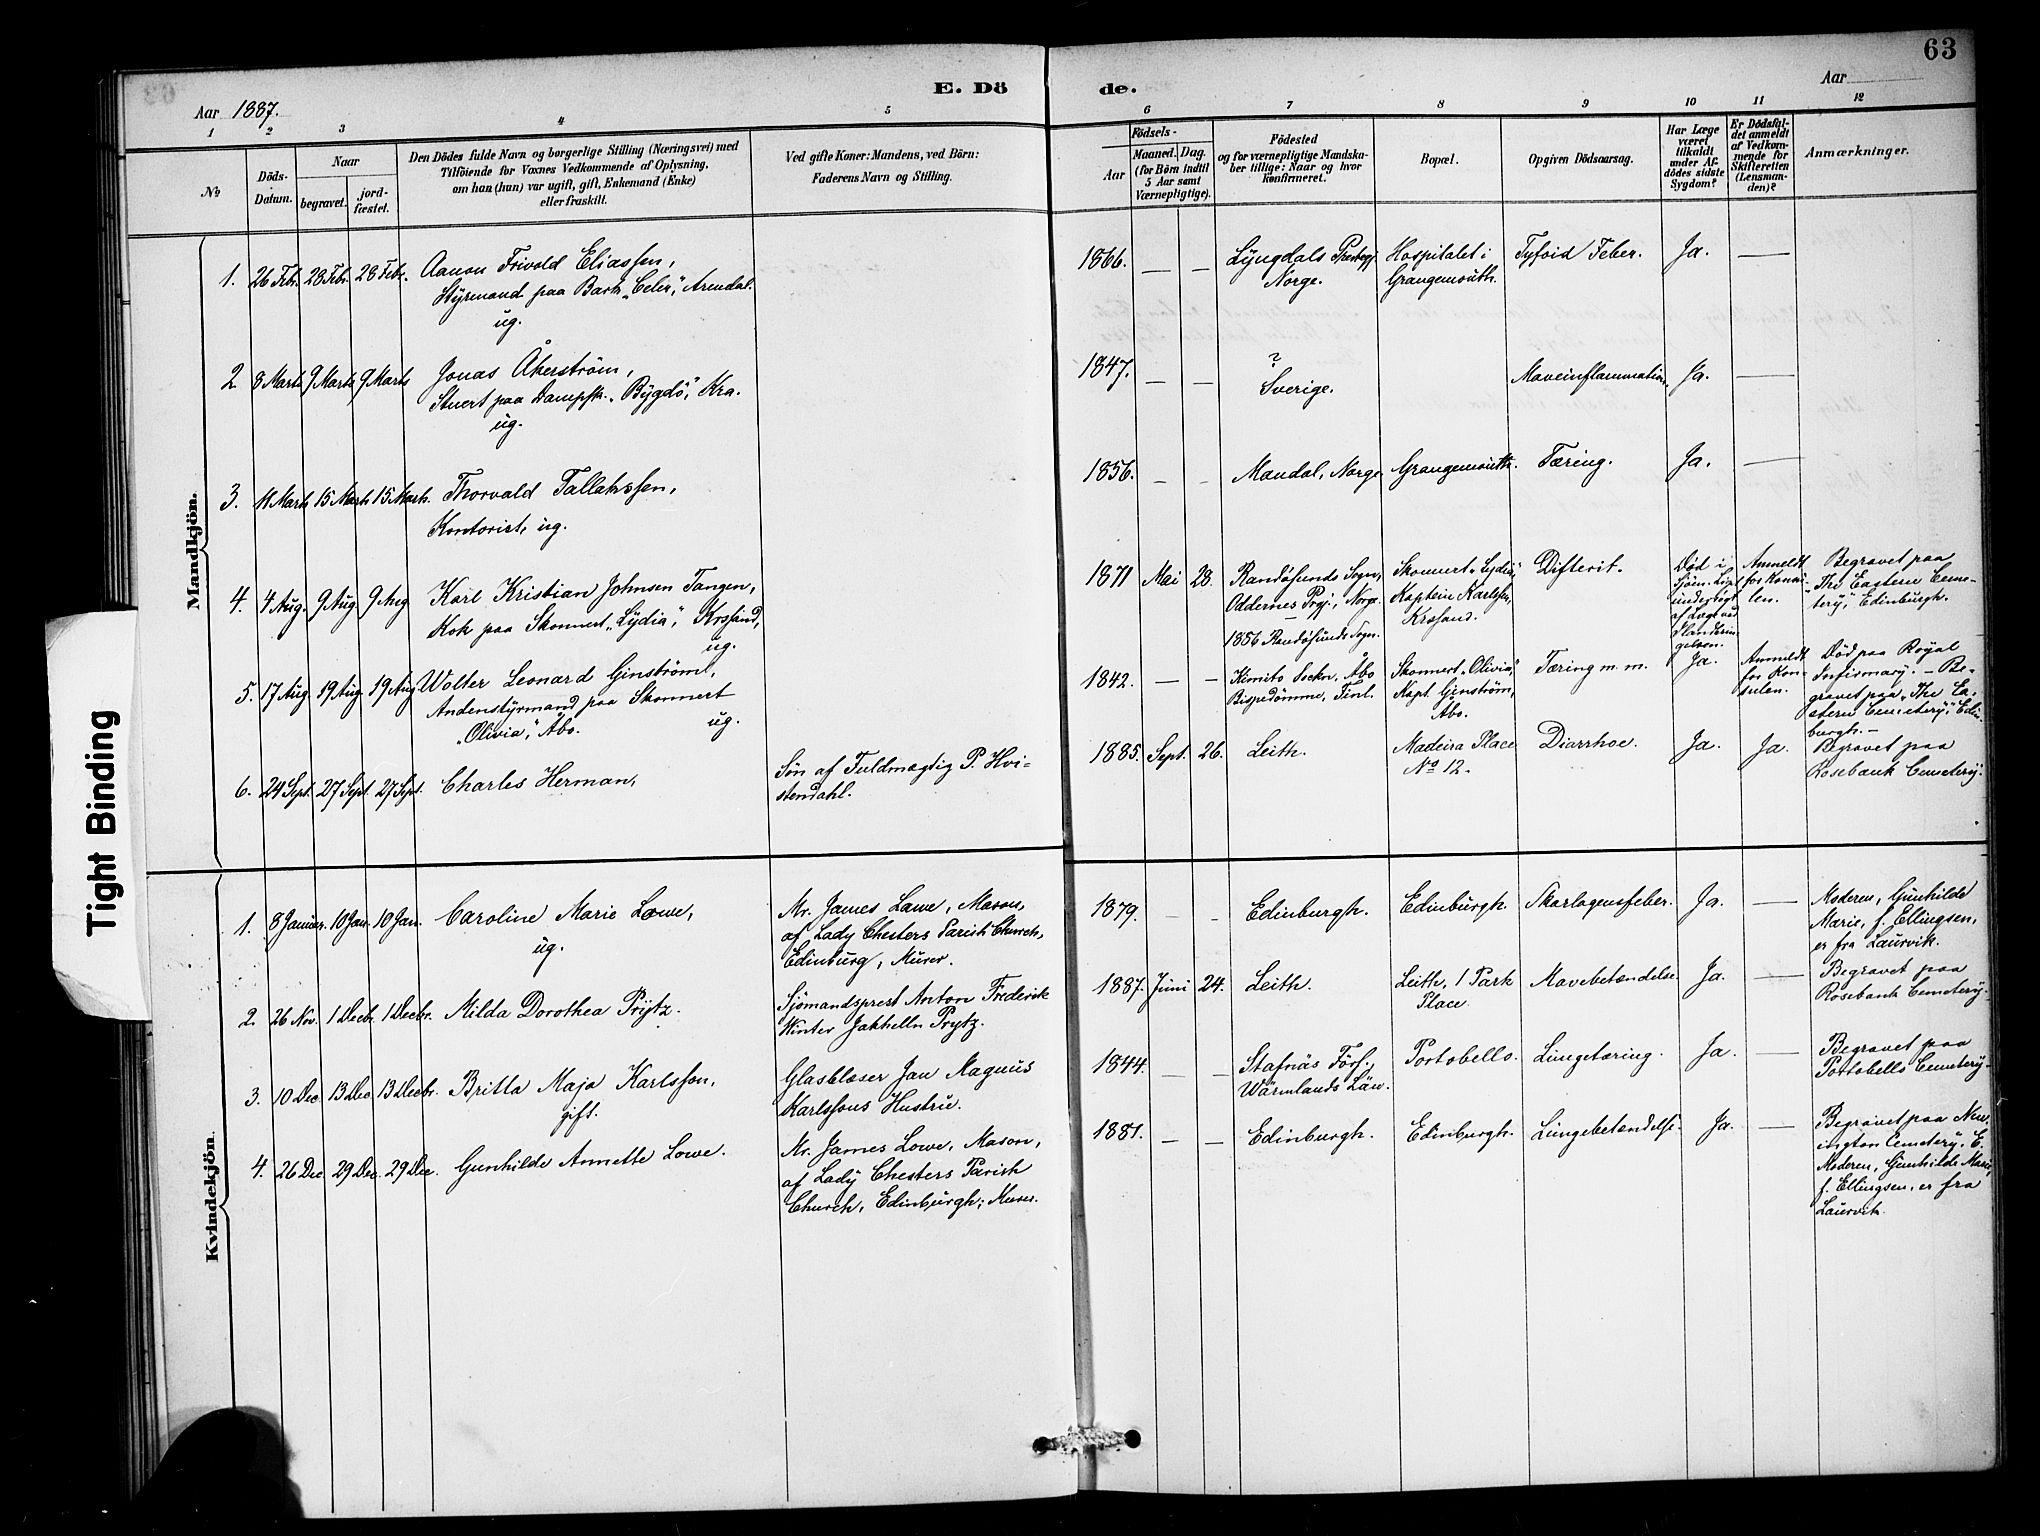 63
Aar 1887.
E. Dö
de.
Aar
1 2 3 4 5
6 7 8 9 10 11 12
No
Döds-
Datum.
Naar
begravet.
jord-
fæstet.
Den Dödes fulde Navn og borgerlige Stilling (Næringsvei) med
Tilföiende for Voxnes Vedkommende af Oplysning,
om han (hun) var ugift, gift, Enkemand (Enke)
eller fraskilt.
Ved gifte Koner: Mandens, ved Börn:
Faderens Navn og Stilling.
Födsels-
Aar
Maaned. Dag.
(for Börn indtil
5 Aar samt
Værnepligtige).
Födested
og for værnepligtige Mandska-
ber tillige: Naar og hvor
konfirmeret.
Bopæl.
Opgiven Dödsaarsag.
Har Læge
været
tilkaldt
under Af-
dödes sidste
Sygdom?
Er Dödsfal-
det anmeldt
af Vedkom-
mende for
Skifteretten
(Lensman-
den)?
Anmærkninger.
Mandkjön.
1. 26 Febr. 28 Febr. 28 Febr. Aanon Frivold Eliassen,
Styrmand paa Bark „Celer“, Arendal.
ug.
1866. — — Lyngdals Prestegj.
Norge.
Hospitalet i
Grangemouth.
Tyfoid Feber. Ja. —
2. 8 Marts 9 Marts 9 Marts Jonas Åkerström,
Stuert paa Dampsk. „Bygdö“, Kra.
ug.
1847. — — ?
Sverige.
Maveinflammation. Ja. —
3. 11 Marts 15 Marts 15 Marts. Thorvald Tallaksen,
Kontorist, ug.
1856. — — Mandal, Norge. Grangemouth. Tæring. Ja. —
4. 4 Aug. 9 Aug. 9 Aug. Karl Kristian Johnsen Tangen,
Kok paa Skonnert „Lydia“, Krsand,
ug.
1871 Mai 28. Randösunds Sogn,
Oddernes Prgj., Norge.
1856 Randösunds Sogn.
Skonnert „Lydia“,
Kaptein Karlsen,
Krsand.
Difterit.
Död i
Sjöen. Liget
undersögt
af Læge ved
Anmeldt
for Konsu-
len.
Begravet paa
„The Eastern Ceme-
tery“, Edinburgh.
5. 17 Aug. 19 Aug. 19 Aug. Wolter Leonard Ginström,
Andenstyrmand paa Skonnert
„Olivia“, Åbo. ug.
1842. — — Kimito Sockn, Åbo
Bispedömme, Finl.
Skonnert „Olivia“,
Kapt. Ginström,
Åbo.
Tæring m. m. Ja. Anmeldt
for Kon-
sulen.
Död paa Royal
Infirmary. – Be-
gravet paa „The Ea-
stern Cemetery“, Edin-
burgh. –
6. 24 Sept. 27 Sept. 27 Sept. Charles Herman,
Sön af Fuldmægtig P. Hvi-
stendahl.
1885. Sept. 26. Leith. Madeira Place
No 12.
Diarrhoe. Ja. Ja. Begravet paa
Rosebank Cemetery.
Kvindekjön.
1. 8 Januar. 10 Jan. 10 Jan. Caroline Marie Lowe,
ug.
Mr. James Lowe, Mason,
af Lady Chesters Parish Church,
Edinburg, Murer.
1879. — — Edinburgh. Edinburgh. Skarlagensfeber. Ja. — Moderen, Gunhilde
Marie, f. Ellingsen,
er fra Laurvik.
2. 26 Nov. 1 Decbr. 1 Decbr. Milda Dorothea Prytz.
Sjömandsprest Anton Frederik
Winter Jakhelln Prytz.
1887. Juni 24. Leith. Leith, 1 Park
Place.
Mavebetændelse. Ja. — Begravet paa
Rosebank Cemetery.
3. 10 Dec. 13 Dec. 13 Decbr. Britta Maja Karlsson,
gift.
Glasblæser Jan Magnus
Karlssons Hustru.
1844. — — Stafnäs Förs.,
Wärmlands Län.
Portobello. Lungetæring. Ja. — Begravet paa
Portobello Cemetery.
4. 26 Dec. 29 Dec. 29 Dec. Gunhilde Annette Lowe.
Mr. James Lowe, Mason,
af Lady Chesters Parish
Church, Edinburgh; Murer.
1881. — — Edinburgh. Edinburgh. Lungebetændelse. Ja. — Begravet paa New-
ington Cemetery, E.
Moderen, Gunhilde Marie,
f. Ellingsen, er fra
Laurvik.
Tight Binding